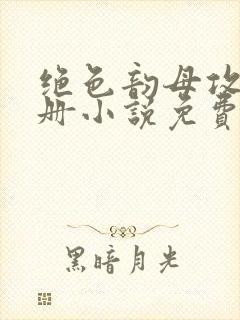 绝色韵母攻
册小说免費
黑暗月光